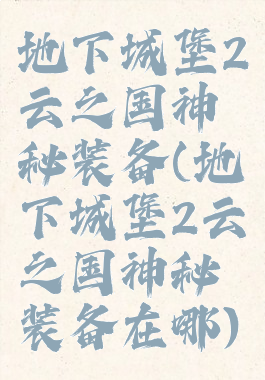 地下城堡2
云之国神
秘装备(地
下城堡2云
之国神秘
装备在哪)